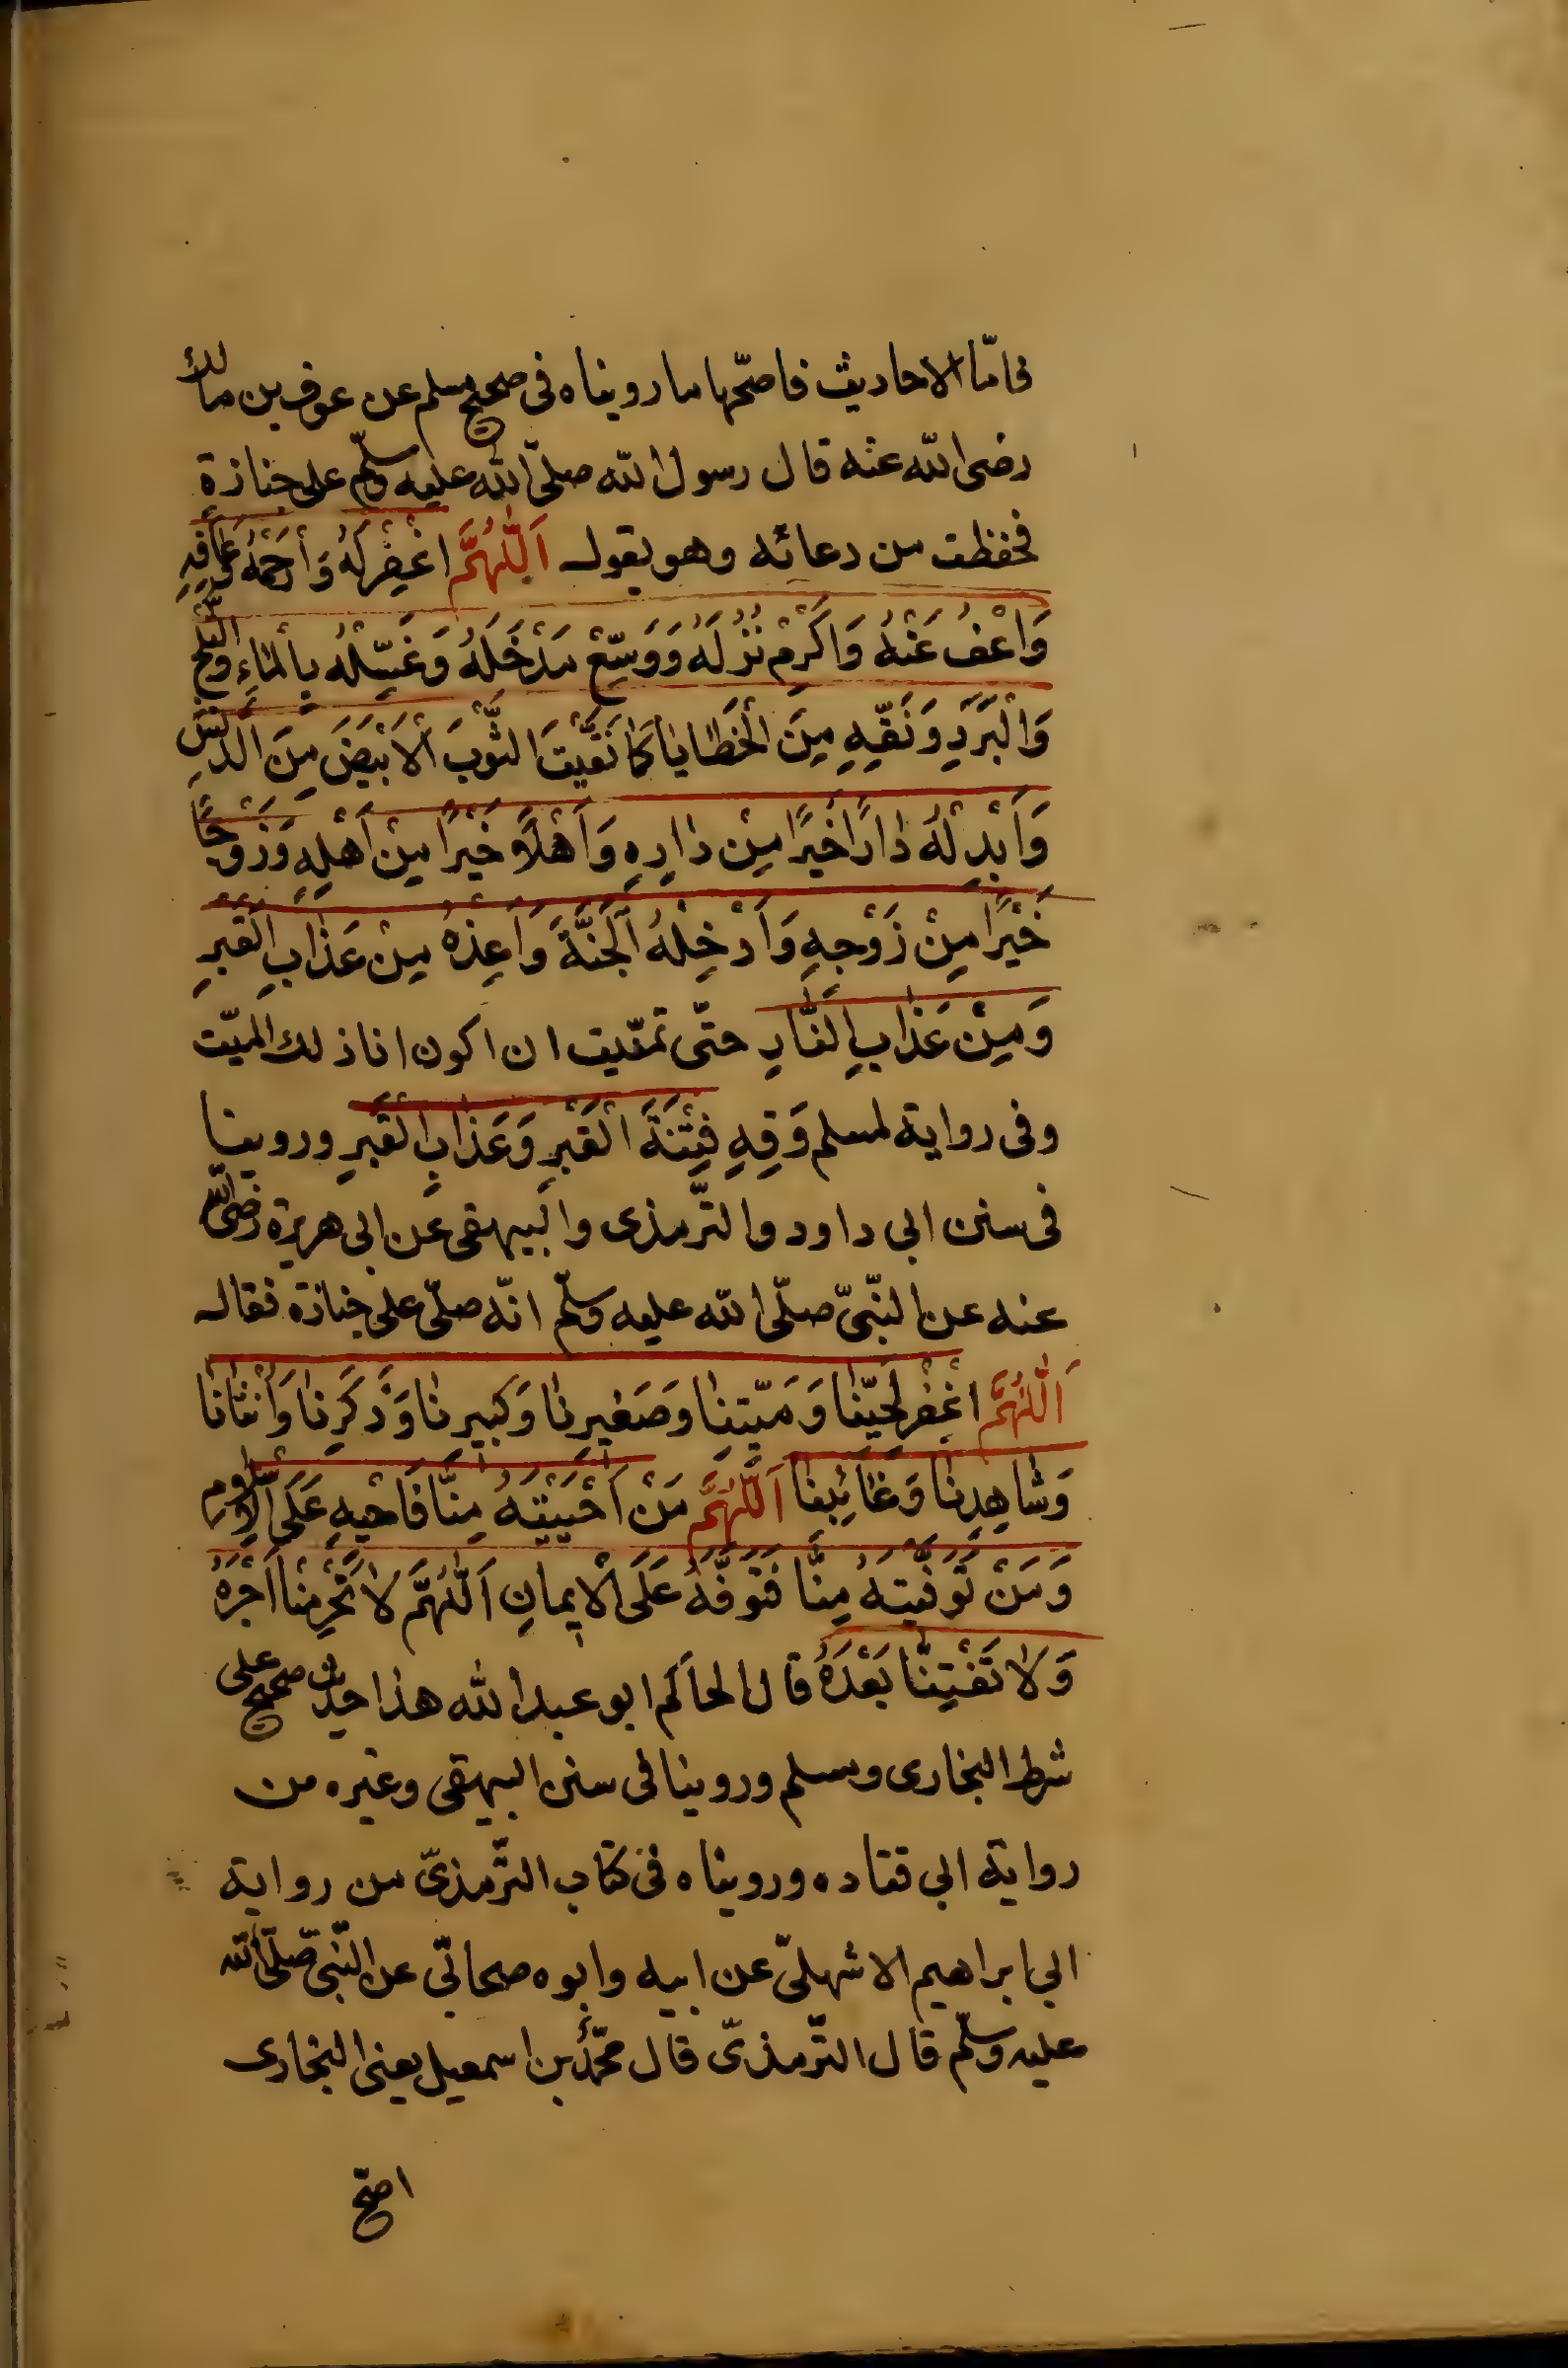 فامّا الاحاديث فاصحّها ما رويناه فى صحيح مسلم عن عوف بن مالك
رضى الله عنه قال رسول الله صلّى الله عليه وسلّم على جنازةٍ
فحفظت من دعائه وهو يقول اَللّٰهُمَّ اغْفِرْ لَهُ وَارْحَمْهُ وَعَافِهِ
وَاعْفُ عَنْهُ وَاَكْرِمْ نُزُلَهُ وَوَسِّعْ مَدْخَلَهُ وَغَسِّلْهُ بِالْمَاءِ وَالثَّلْجِ
وَالْبَرَدِ وَنَقِّهِ مِنَ الْخَطَايَا كَمَا نَقَّيْتَ الثَّوْبَ الْاَبْيَضَ مِنَ الدَّنَسِ
وَاَبْدِلْهُ دَارًا خَيْرًا مِنْ دَارِهِ وَاَهْلًا خَيْرًا مِنْ اَهْلِهِ وَزَوْجًا
خَيْرًا مِنْ زَوْجِهِ وَاَدْخِلْهُ الْجَنَّةَ وَاَعِذْهُ مِنْ عَذَابِ الْقَبْرِ
وَمِنْ عَذَابِ النَّارِ حتّى تمنّيت ان اكون انا ذلك الميّت
وفى رواية لمسلم وَقِهِ فِتْنَةَ الْقَبْرِ وَعَذَابِ الْقَبْرِ وروينا
فى سنن ابى داود والتّرمذى والبيهقى عن ابى هريرة رضى الله
عنه عن النّبىّ صلّى الله عليه وسلّم انّه صلّى على جنازة فقال
اَللّٰهُمَّ اغْفِرْ لِحَيِّنَا وَمَيِّتِنَا وَصَغِيرِنَا وَكَبِيرِنَا وَذَكَرِنَا وَاُنْثَانَا
وَشَاهِدِنَا وَغَائِبِنَا اَللّٰهُمَّ مَنْ اَحْيَيْتَهُ مِنَّا فَاَحْيِهِ عَلَى الْاِسْلَامِ
وَمَنْ تَوَفَّيْتَهُ مِنَّا فَتَوَفَّهُ عَلَى الْاِيمَانِ اَللّٰهُمَّ لَا تَحْرِمْنَا اَجْرَهُ
وَلَا تَفْتِنَّا بَعْدَهُ قال الحاكم ابو عبد الله هذا حديث صحيح على
شرط البخارى ومسلم وروينا فى سنن البيهقى وغيره من
رواية ابى قتاده ورويناه فى كتاب التّرمذىّ من رواية
ابى ابراهيم الاشهلىّ عن ابيه وابوه صحابىّ عن النّبىّ صلّى الله
عليه وسلّم قال التّرمذىّ قال محمّد بن اسمعيل يعنى البخارى
اصحّ